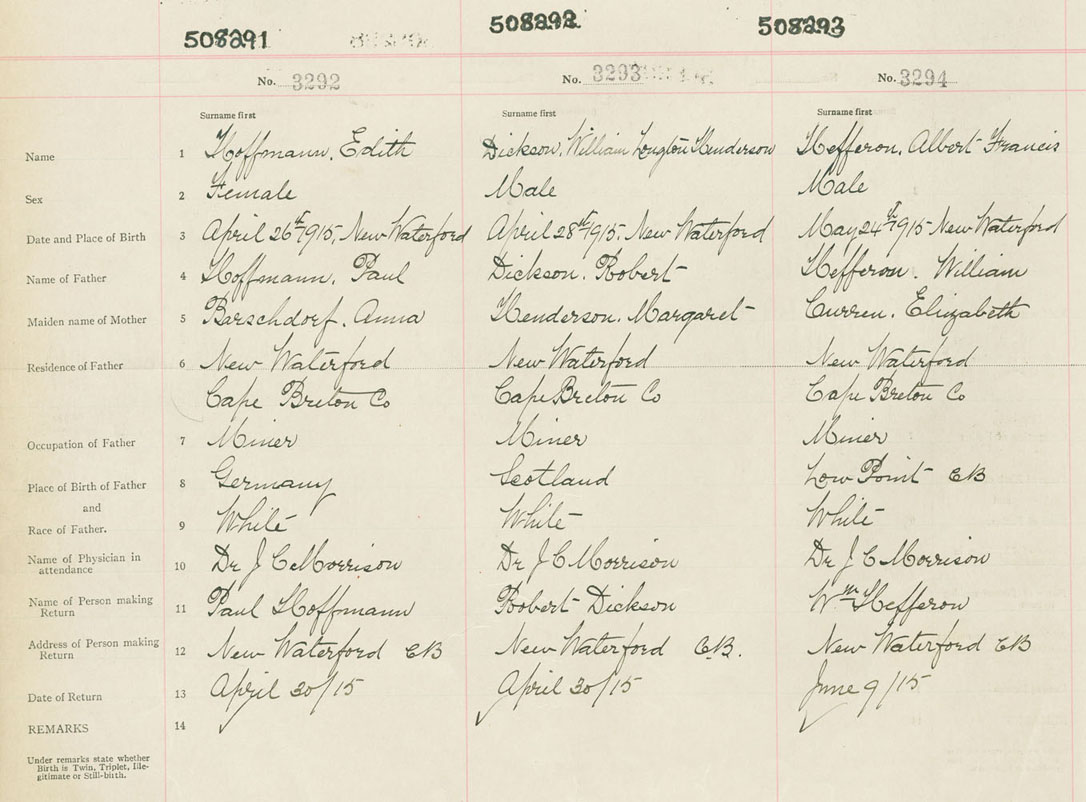 508291 508292 508293
No. 3292 No. 3293 No. 3294
Surname first Surname first Surname first
Name 1 Hoffmann, Edith Dickson, William Longton Henderson Hefferon, Albert Francis
Sex 2 Female Male Male
Date and Place of Birth 3 April 26th 1915, New Waterford April 28th 1915, New Waterford May 24th 1915 New Waterford
Name of Father 4 Hoffmann, Paul Dickson, Robert Hefferon, William
Maiden name of Mother 5 Barschdorf, Anna Henderson, Margaret Curren, Elizabeth
Residence of Father 6 New Waterford New Waterford New Waterford
Cape Breton Co Cape Breton Co Cape Breton Co
Occupation of Father 7 Miner Miner Miner
Place of Birth of Father 8 Germany Scotland Low Point CB
and
Race of Father. 9 White White White
Name of Physician in
attendance 10 Dr J C Morrison Dr J C Morrison Dr J C Morrison
Name of Person making
Return 11 Paul Hoffmann Robert Dickson Wm Hefferon
Address of Person making
Return 12 New Waterford CB New Waterford C.B. New Waterford CB
Date of Return 13 April 30/15 April 30/15 June 9/15
REMARKS 14
Under remarks state whether
Birth is Twin, Triplet, Ille-
gitimate or Still-birth.